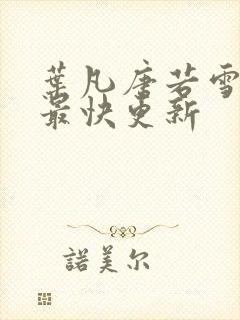 葉凡唐若雪
最快更新
諾美尔